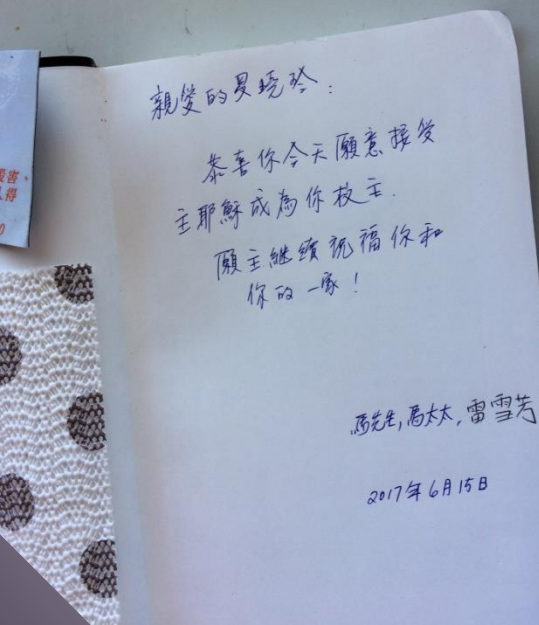 親愛的曼曉玲：
恭喜你今天願意接受
主耶穌成為你救主.
願主繼續祝福你和
你的一家！
馮先生,馮太太,雷雪芳
2017年6月15日
害、
得
0